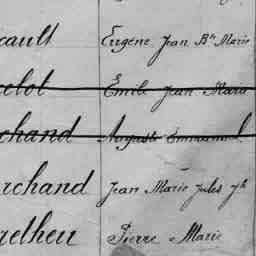 cault Eugène Jean Bte Marie
elot Emile Jean Marie
chand Auguste Emmanuel
rchand Jean Marie Jules Jh
relheu Pierre Marie